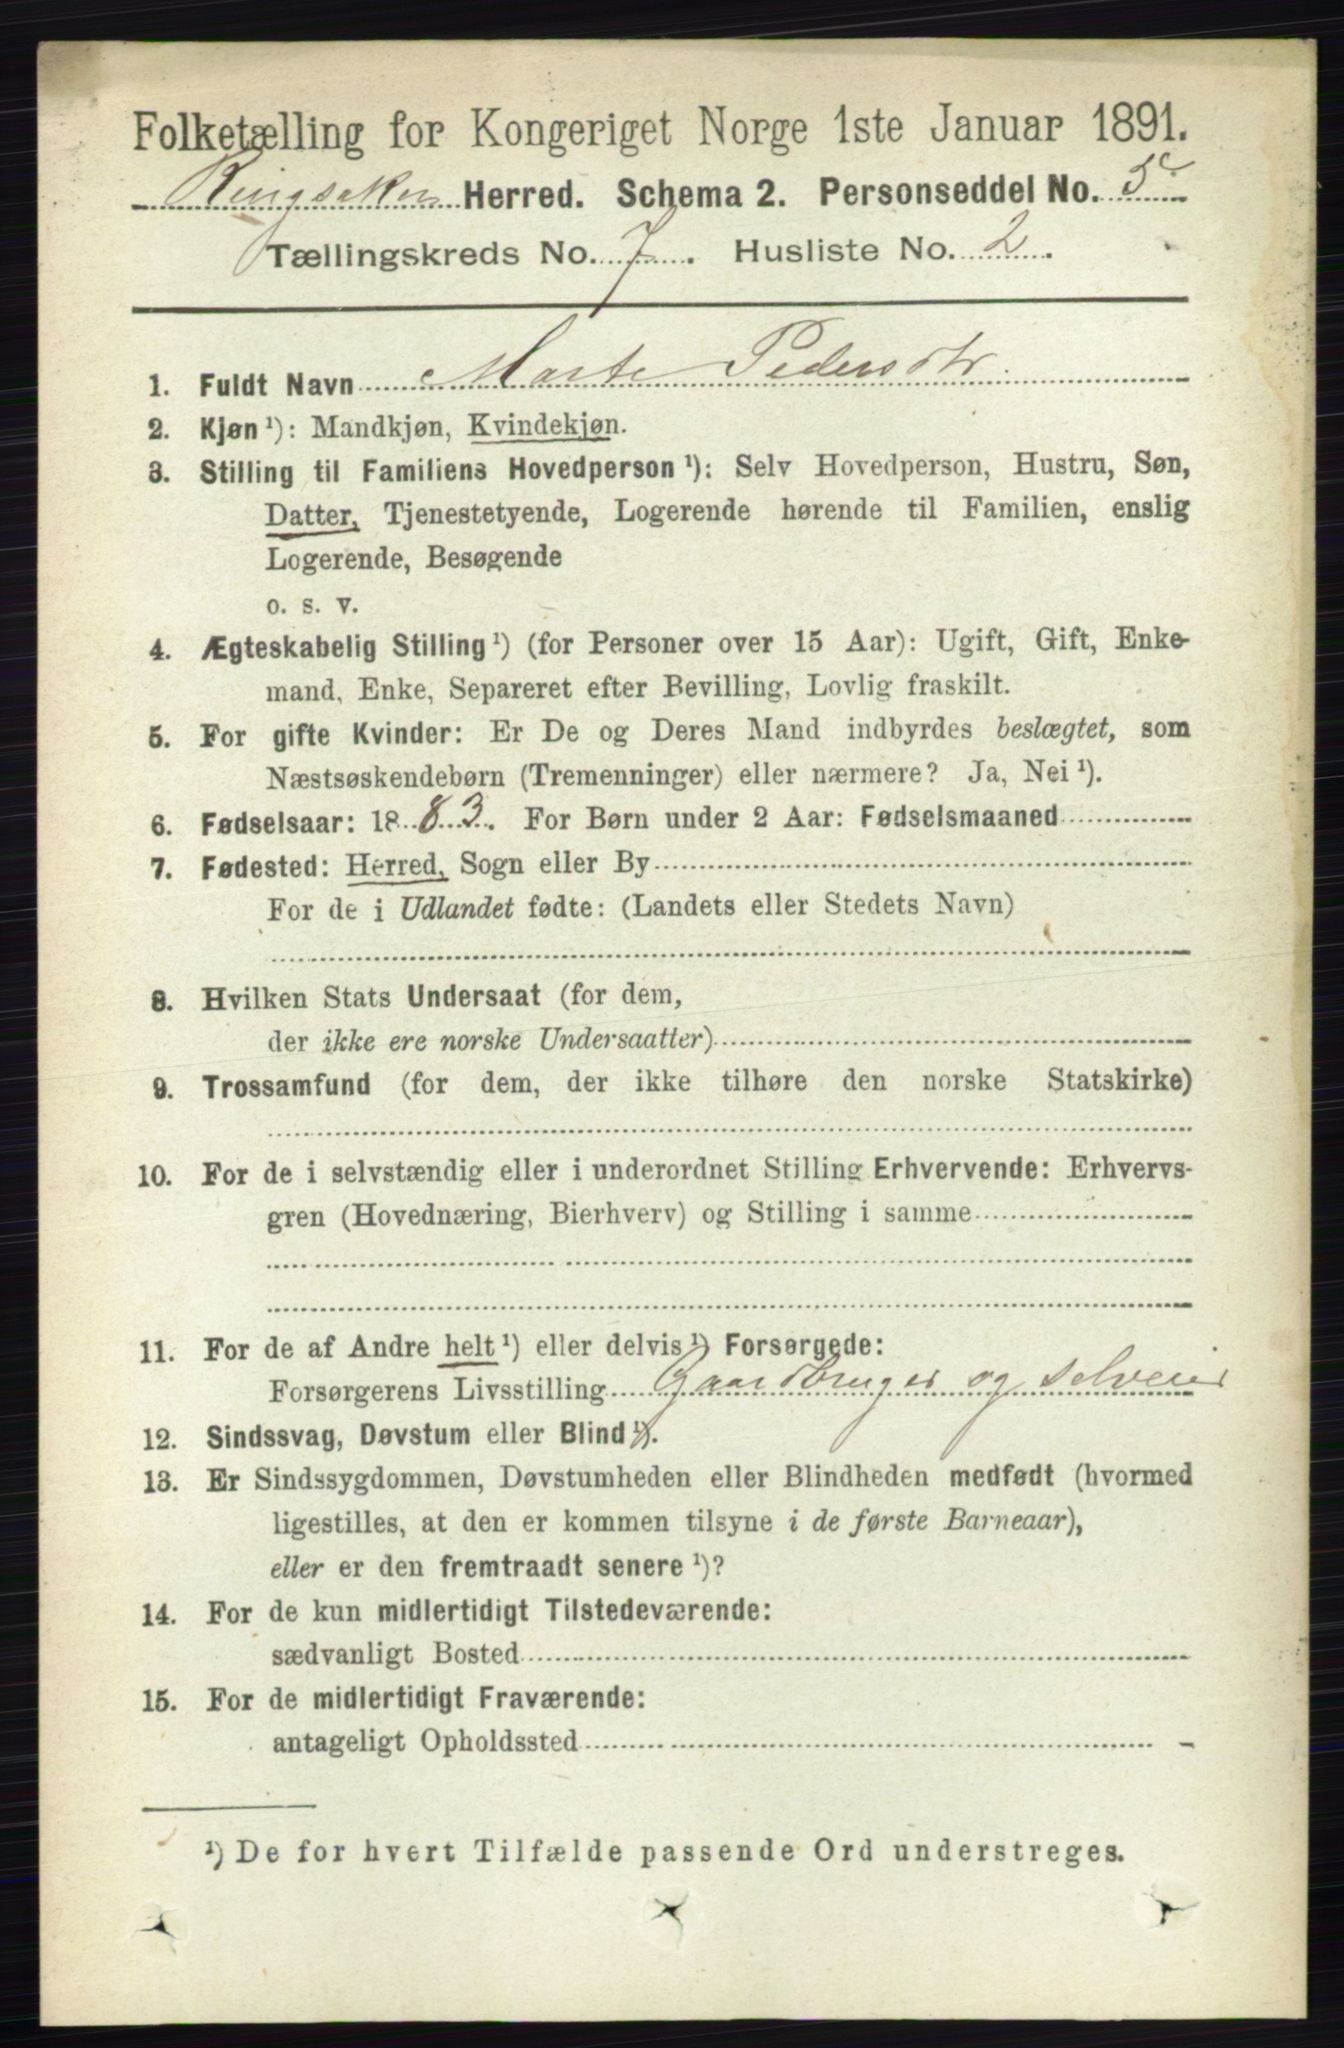 Folketælling for Kongeriget Norge 1ste Januar 1891.
Ringsaker Herred. Schema 2. Personseddel No. 5
Tællingskreds No. 7. Husliste No. 2.
1. Fuldt Navn Marte Pedersdtr
2. Kjøn ¹): Mandkjøn, Kvindekjøn.
3. Stilling til Familiens Hovedperson ¹): Selv Hovedperson, Hustru, Søn,
Datter, Tjenestetyende, Logerende hørende til Familien, enslig
Logerende, Besøgende
o. s. v.
4. Ægteskabelig Stilling ¹) (for Personer over 15 Aar): Ugift, Gift, Enke-
mand, Enke, Separeret efter Bevilling, Lovlig fraskilt.
5. For gifte Kvinder: Er De og Deres Mand indbyrdes beslægtet, som
Næstsøskendebørn (Tremenninger) eller nærmere? Ja, Nei ¹).
6. Fødselsaar: 1883. For Børn under 2 Aar: Fødselsmaaned
7. Fødested: Herred, Sogn eller By
For de i Udlandet fødte: (Landets eller Stedets Navn)
8. Hvilken Stats Undersaat (for dem,
der ikke ere norske Undersaatter)
9. Trossamfund (for dem, der ikke tilhøre den norske Statskirke)
10. For de i selvstændig eller i underordnet Stilling Erhvervende: Erhvervs-
gren (Hovednæring, Bierhverv) og Stilling i samme
11. For de af Andre helt ¹) eller delvis ¹) Forsørgede:
Forsørgerens Livsstilling Gaardbruger og selveier
12. Sindssvag, Døvstum eller Blind ¹).
13. Er Sindssygdommen, Døvstumheden eller Blindheden medfødt (hvormed
ligestilles, at den er kommen tilsyne i de første Barneaar),
eller er den fremtraadt senere ¹)?
14. For de kun midlertidigt Tilstedeværende:
sædvanligt Bosted
15. For de midlertidigt Fraværende:
antageligt Opholdssted
¹) De for hvert Tilfælde passende Ord understreges.